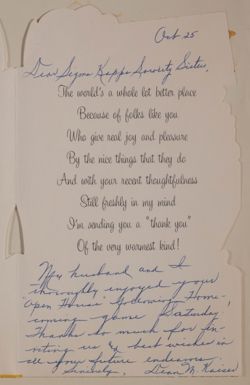 Oct 25
Dear Sigma Kappa Sorority Sisters,
The world's a whole lot better place
Because of folks like you
Who give real joy and pleasure
By the nice things that they do
And with your recent thoughtfulness
Still freshly in my mind
I'm sending you a "thank you"
Of the very warmest kind!
My husband and I
thoroughly enjoyed your
"Open House" following Home-
coming game Saturday
Thanks so much for in-
viting us & best wishes in
all your future endeavors.
Sincerely, Dean M. Kaiser